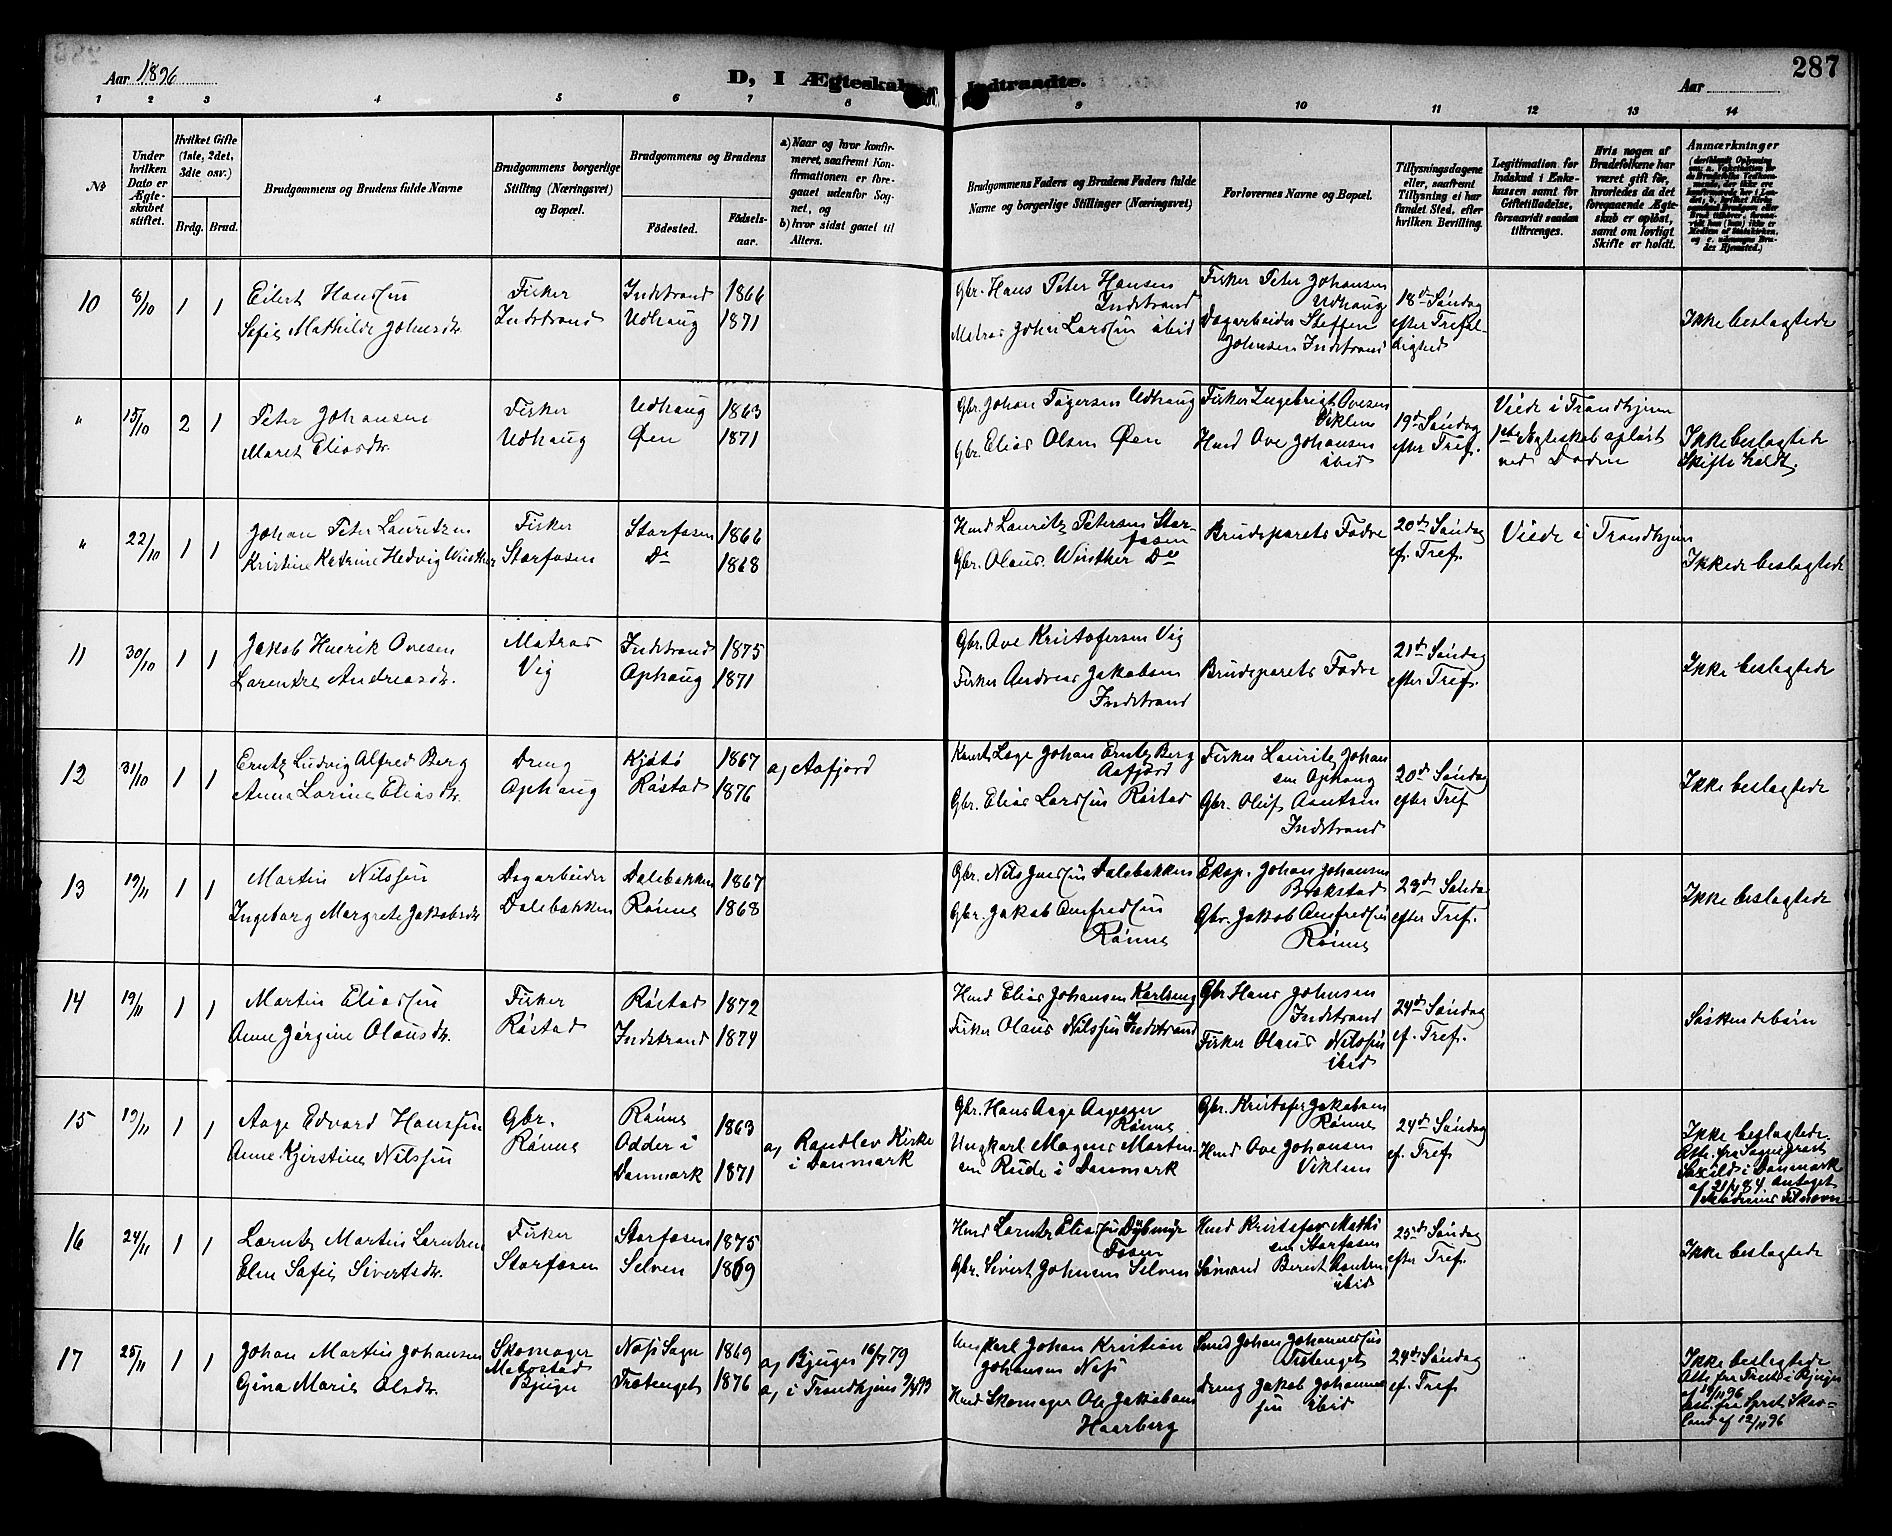 Aar 1896
D, I Ægteskab Indtraadte.
Aar
287
1 2 3 4 5 6 7 8 9 10 11 12 13 14
No
Under hvilken Dato er Ægteskabet stiftet.
Hvilket Gifte (1ste, 2det, 3die osv.)
Brdg. Brud.
Brudgommens og Brudens fulde Navne
Brudgommens borgerlige Stilling (Næringsvei) og Bopæl.
Brudgommens og Brudens
Fødested.
Fødselsaar.
a) Naar og hvor konfirmeret, saafremt Konfirmationen er foregaaet udenfor Sognet, og
b) hvor sidst gaaet til Alters.
Brudgommens Faders og Brudens Faders fulde Navne og borgerlige Stillinger (Næringsvei)
Forlovernes Navne og Bopæl.
Tillysningsdagene eller, saafremt Tillysning ei har fundet Sted, efter hvilken Bevilling.
Legitimation for Indskud i Enkekassen samt for Giftetilladelse, forsaavidt saadan tiltrænges.
Hvis nogen af Brudefolkene har været gift før, hvorledes da det foregaaende Ægteskab er opløst, samt om lovligt Skifte er holdt.
Anmærkninger
10 8/10 1 1
Eilert Hanssen
Sofie Mathilde Johnsdr.
Fisker
Indstrand
Indstrand 1866
Udhaug 1871
Gbr. Hans Peter Hansen
Indstrand
Matros John Larssen ibid
Fisker Peter Johansen
Udhaug
Dagarbeider Steffen
Johnsen Indstrand
18de Søndag
efter Trefol-
dighed
Ikke beslægtede
" 15/10 2 1
Peter Johansen
Maret Eliasdr.
Fisker
Udhaug
Udhaug 1863
Øen 1871
Gbr. Johan Udhaug
Gbr. Elias Olsen Øen
Fisker Ingebrigt Ovesen
Viklem
Hmd Ove Johansen
ibid
19de Søndag
efter Tref.
Viede i Trondhjem
1ste Ægteskab opløst
ved Døden
Ikke beslægtede
Skifte holdt.
" 22/10 1 1
Johan Peter Lauritzen
Kristine Katrine Hedvig Winther
Fisker
Storfosen
Storfosen 1866
Do 1868
Hmd Lauritz Petersen Stor-
fosen
Gbr. Olaus Winther Do
Brudeparets Fædre
20de Søndag
ef. Tref.
Viede i Trondhjem
Ikkede beslægtede
11 30/10 1 1
Jakob Henrik Ovesen
Lorentze Andreasdr.
Matros
Vig
Indstrand 1875
Ophaug 1871
Gbr. Ove Kristofersen Vig
Fisker Andreas Jakobsen
Indstrand
Brudeparets Fædre
21de Søndag
efter Tref.
Ikke beslægtede
12 31/10 1 1
Erntz Ludvig Alfred Berg
Anna Lorine Eliasdr.
Dreng
Ophaug
Kjøtø 1867
Røstad 1876
a) Aafjord
Johan Erntz Berg
Aafjord
Gbr. Elias Larssen Røstad
Fisker Lauritz Johan
sen Ophaug
Gbr. Oluf Arntsen
Indstrand
20de Søndag
efter Tref
Ikke beslægtede
13 19/11 1 1
Martin Nilssen
Ingeborg Margrete Jakobsdr
Dagarbeider
Dalebakken
Dalebakken 1867
Rønne 1868
Gbr. Nils Dalebakken
Gbr. Jakob Anfredsen
Rønne
Eksp. Johan Johansen
Brekstad
Gbr. Jakob Anfredsen
Rønne
23de Søndag
efter Tref.
Ikke beslægtede
14 19/11 1 1
Martin Eliassen
Anne Jørgine Olausdr.
Fisker
Røstad
Røstad 1872
Indstrand 1874
Hmd Elias Johansen Karlseng
Fisker Olaus Nilssen Indstrand
Gbr Hans Johnsen
Indstrand
Fisker Olaus Nilssen
ibid
24de Søndag
ef. Tref.
Søskendebørn
15 19/11 1 1
Aage Edvard Hanssen
Anne Kjerstine Nilssen
Gbr.
Rønne
Rønne 1863
Odder i
Danmark 1871
a) Randlev Kirke
i Danmark
Gbr. Hans Aage Aagesen
Rønne
Ungkarl Magnus Martin-
sen Rude i Danmark
Gbr. Kristofer Jakobsen
Rønne
Hmd Ove Johansen
Viklem
24de Søndag
ef. Tref
Ikke beslægtede.
Att. fra Sognepræst
i Danmark
16 24/11 1 1
Lorntz Martin Lorntzen
Elen Sofie Sivertsdr.
Fisker
Storfosen
Storfosen 1875
Selven 1869
Hmd Lorntz Eliassen
Fosen
Gbr. Sivert Johnsen Selven
Hmd Kristofer Mathi
sen Storfosen
Sømand Berent
ibid
25de Søndag
efter Tref.
Ikke beslægtede
17 25/11 1 1
Johan Martin Johansen
Gina Marie Olsdr.
Skomager
Bjugn
Næss Sogn 1869
Trætenget 1876
a) Bjugn 16/7 79
a) i Trondhjem 93
Ungkarl Johan Kristian
Johansen Næss
Hmd Skomager Ole Jakobsen
Haarberg
Johan Johannessen
Trætenget
Dreng Jakob Johannes
sen ibid
24de Søndag
ef. Tref
Ikke beslægtede